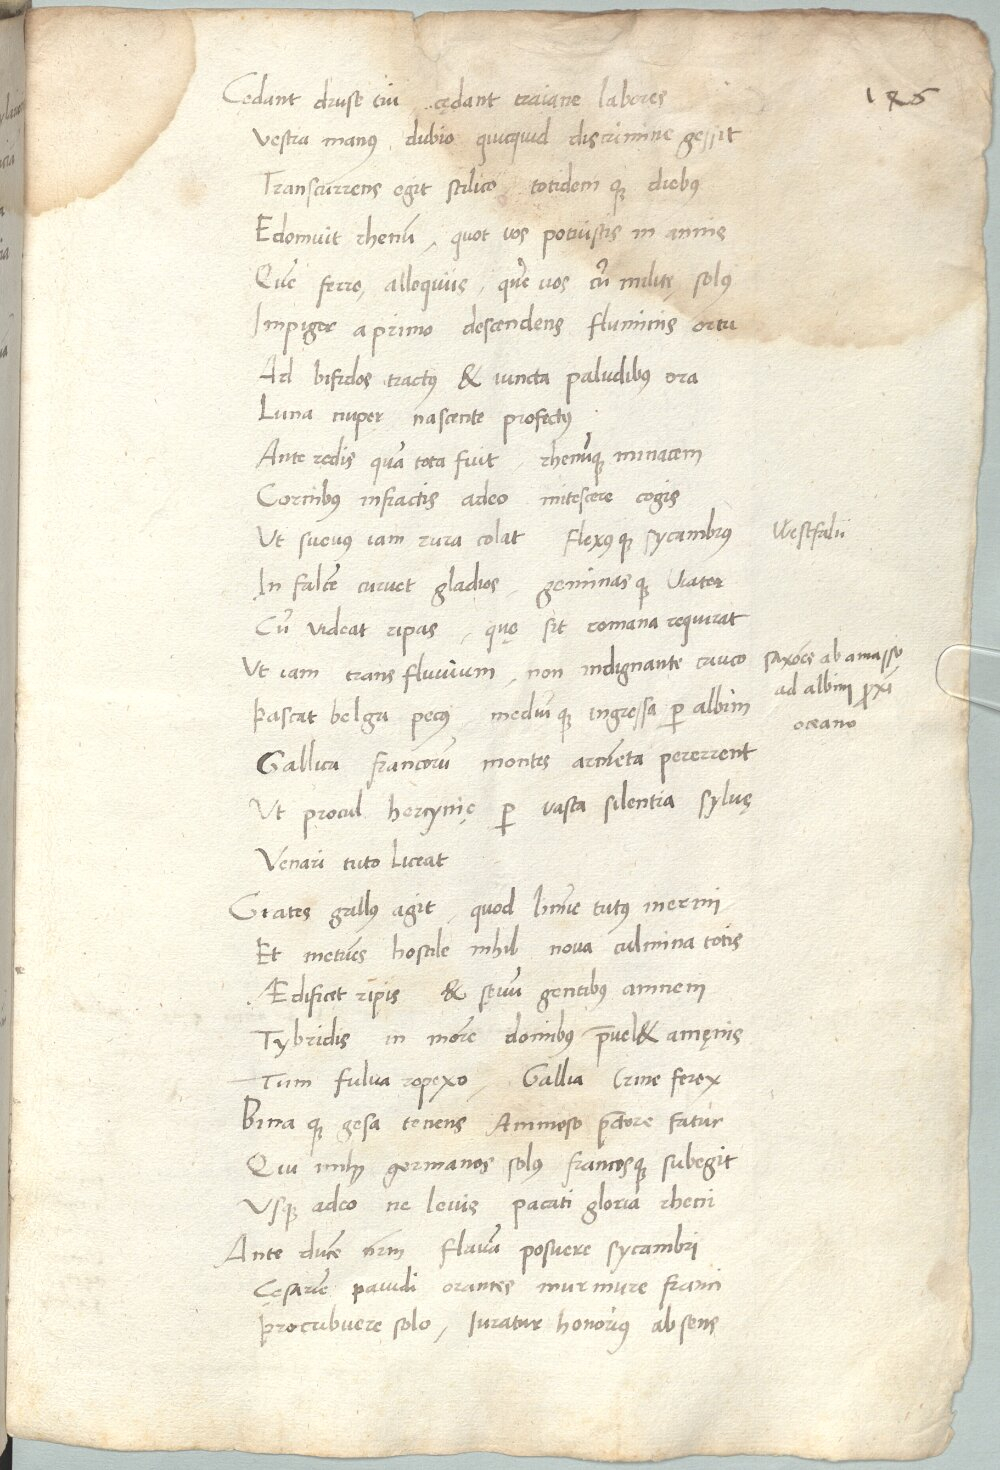 185
Cędant druse tui cędant traiane labores
Vestra manꝰ, dubio quicquid discrimine gessit
Transcurrens egit stilico, totidem qꝫ diebꝰ
Edomuit rhenū, quot vos potuistis in annis
Quē ferro, alloquiis, quē vos cū milite, solꝰ
Impiger a primo descendens fluminis ortu
Ad bifidos tractꝰ & iuncta paludibꝰ ora
Luna nuper nascente profectꝰ
Ante redis quā tota fuit, rhenūqꝫ minacem
Cornibꝰ infractis adeo mitescere cogis
Ut suevꝰ iam rura colat flexꝰ qꝫ sycambrꝰ Westfalii
In falcē curvet gladios, geminas qꝫ viator
Cū videat ripas, quę sit romana requirat
Ut iam trans fluvium, non indignante cauco saxōes ab amasso
ad albim ꝓxī
Pascat belga pecꝰ, mediū qꝫ ingressa ꝑ albim
oceano
Gallica francorū montes armēta pererrent
Ut procul hercynię ꝑ vasta silentia sylvę
Venari tuto liceat
Grates gallꝰ agit, quod līmē tutꝰ inermi
Et metuēs hostile nihil nova culmina totis
Ædificet ripis & sęvū gentibꝰ amnem
Tybridis in mōrē domibꝰ p̄vel& amęnis
Tum fulva repexo, Gallia crine ferox
Bina qꝫ gesa tenens Animoso pectore fatur
Qui mihi germanos solꝰ francosqꝫ subegit
Usqꝫ adeo ne levis pacati gloria rheni
Ante ducē nrm̄ flavā posuere sycambri
Cęsariē pavidi orantes murmure franci
Procubuere solo, Iuratur honoriꝰ absens